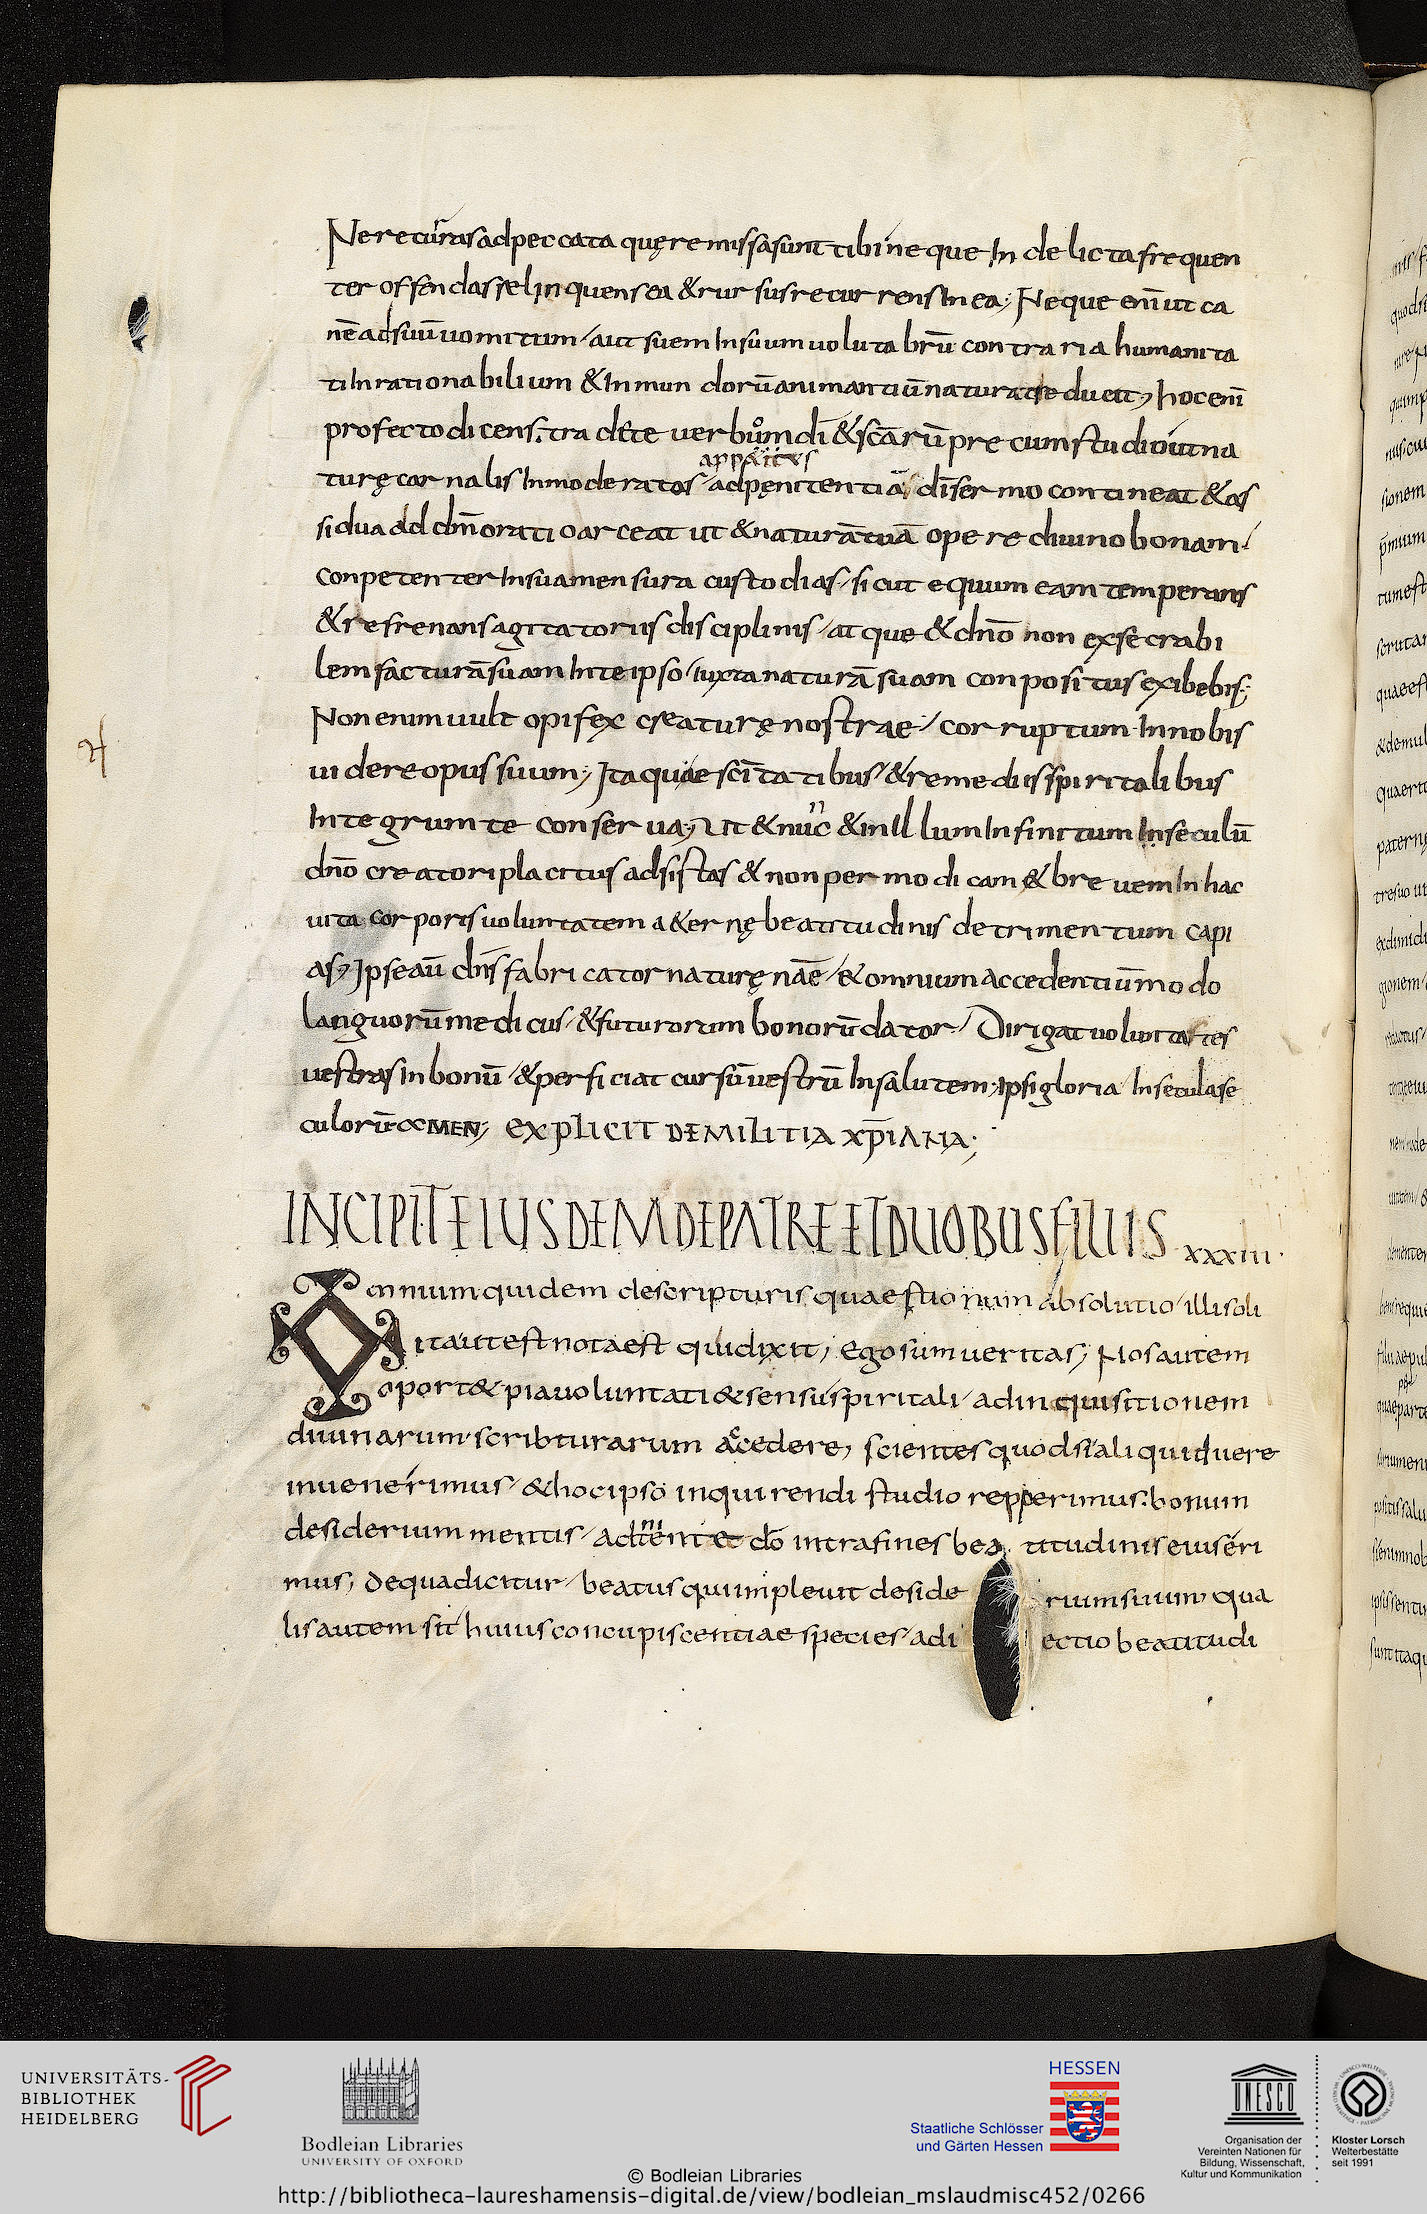 Ne returnasadpeccata quęremissasunt tibi neque In delictafrequen
ter offendas relinquensea &rursusrecurrensInea; Neque enī ut ca
nē adsuū uomitum aut suem Insuumuolutabrū contraria humanita
ti Inrationabilium &Inmundorū animantiū natura te duc&t; hocenī
profecto dicens; tradete verbum dī &scārū precum studio ut na
app&itus
turę carnalis Inmoderatos adpęnitentiā dī sermo contineat &as
sidua ad dm̄ oratio arceat ut &naturā tuā opere diuino bonam
conpetenter Insuamensura custodias sicut equum eam temperans
&refrenans agitatoriis disciplinis atque &dn̄o non exsecrabi
lem facturā suam Inteipso iuxta naturā suam conpositus exibebis;
Non enim uult opifex creaturę nostrae corruptum Innobis
uidere opus suum; Itaque sc̄itatibus &remediis sp̄iritalibus
Integrum te conserua; Ut &nunc &inillum Infinitum Inseculū
dn̄o creatori placitus adsistas &non permodicam &breuem In hac
uita corporis uoluntatem a&ernę beatitudinis detrimentum capi
as; Ipse aū dn̄s fabricator naturę nr̄ae &omnium accedentiū modo
languorū medicus &futurorum bonorū dator Dirigat uoluntates
uestras In bonū &perficiat cursū uestrū Insalutem; ipsi gloria In seculase
culorū AMEN; EXPLICIT DEMILITIA XP̄IANA;
INCIPIT EIUSDEM DEPATRE ET DUOBUS FILIIS XXXIII
Omnium quidem descripturis quaestionum absolutio illi soli
ita ut est nota est qui dixit; Ego sum ueritas; Nos autem
oport& pia uoluntati &sensu spiritali ad inquisitionem
diuinarum scribturarum accedere; scientes quod si aliquid uere
inuenerimus &hoc ipso inquirendi studio repperimus; bonum
desiderium mentis adtenente dō intra fines beatitudinis eius eri
mus; De qua dicitur beatus qui impleuit desiderium suum qua
lis autem sit huius concupiscentiae species adiectio beatitudi
UNIVERSITÄTS-
BIBLIOTHEK
HEIDELBERG
Bodleian Libraries
UNIVERSITY OF OXFORD
HESSEN
Staatliche Schlösser
und Gärten Hessen
UNESCO
Organisation der
Vereinten Nationen für
Bildung, Wissenschaft,
Kultur und Kommunikation
Kloster Lorsch
Welterbestätte
seit 1991
© Bodleian Libraries
http://bibliotheca-laureshamensis-digital.de/view/bodleian_mslaudmisc452/0266